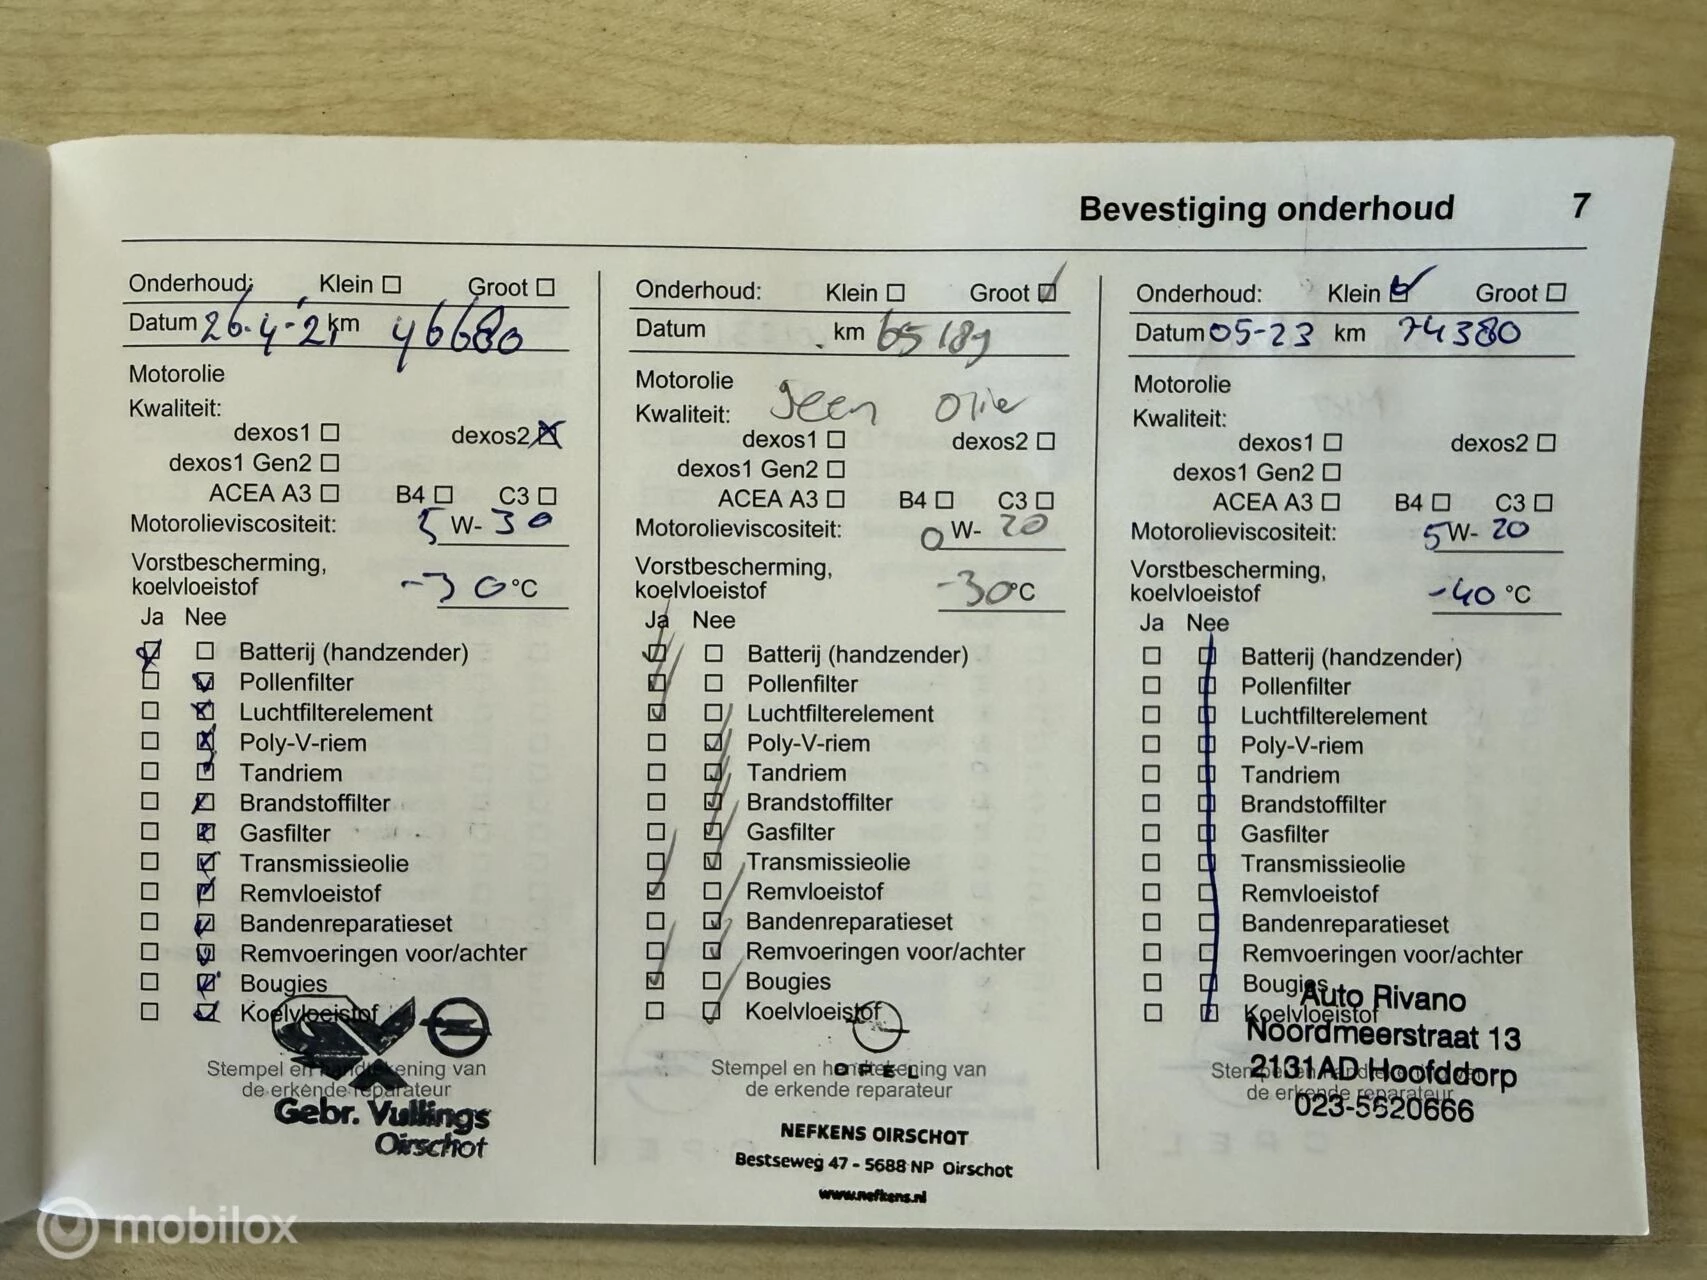 Bevestiging onderhoud 7
Onderhoud: Klein Groot
Datum 26-4-'21 km 46680
Motorolie
Kwaliteit:
dexos1 dexos2
dexos1 Gen2
ACEA A3 B4 C3
Motorolieviscositeit: 5 W- 30
Vorstbescherming,
koelvloeistof -30 °C
Ja Nee
Batterij (handzender)
Pollenfilter
Luchtfilterelement
Poly-V-riem
Tandriem
Brandstoffilter
Gasfilter
Transmissieolie
Remvloeistof
Bandenreparatieset
Remvoeringen voor/achter
Bougies
Koelvloeistof
Stempel en handtekening van
de erkende reparateur
Gebr. Vullings
Oirschot
Onderhoud: Klein Groot
Datum km 65189
Motorolie
Kwaliteit: geen olie
dexos1 dexos2
dexos1 Gen2
ACEA A3 B4 C3
Motorolieviscositeit: 0 W- 20
Vorstbescherming,
koelvloeistof -30 °C
Ja Nee
Batterij (handzender)
Pollenfilter
Luchtfilterelement
Poly-V-riem
Tandriem
Brandstoffilter
Gasfilter
Transmissieolie
Remvloeistof
Bandenreparatieset
Remvoeringen voor/achter
Bougies
Koelvloeistof
Stempel en handtekening van
OPEL
de erkende reparateur
NEFKENS OIRSCHOT
Bestseweg 47 - 5688 NP Oirschot
www.nefkens.nl
Onderhoud: Klein Groot
Datum 05-23 km 74380
Motorolie
Kwaliteit:
dexos1 dexos2
dexos1 Gen2
ACEA A3 B4 C3
Motorolieviscositeit: 5 W- 20
Vorstbescherming,
koelvloeistof -40 °C
Ja Nee
Batterij (handzender)
Pollenfilter
Luchtfilterelement
Poly-V-riem
Tandriem
Brandstoffilter
Gasfilter
Transmissieolie
Remvloeistof
Bandenreparatieset
Remvoeringen voor/achter
Bougies
Koelvloeistof
Auto Rivano
Noordmeerstraat 13
2131AD Hoofddorp
Stempel en handtekening van
de erkende reparateur
023-5620666
mobilox